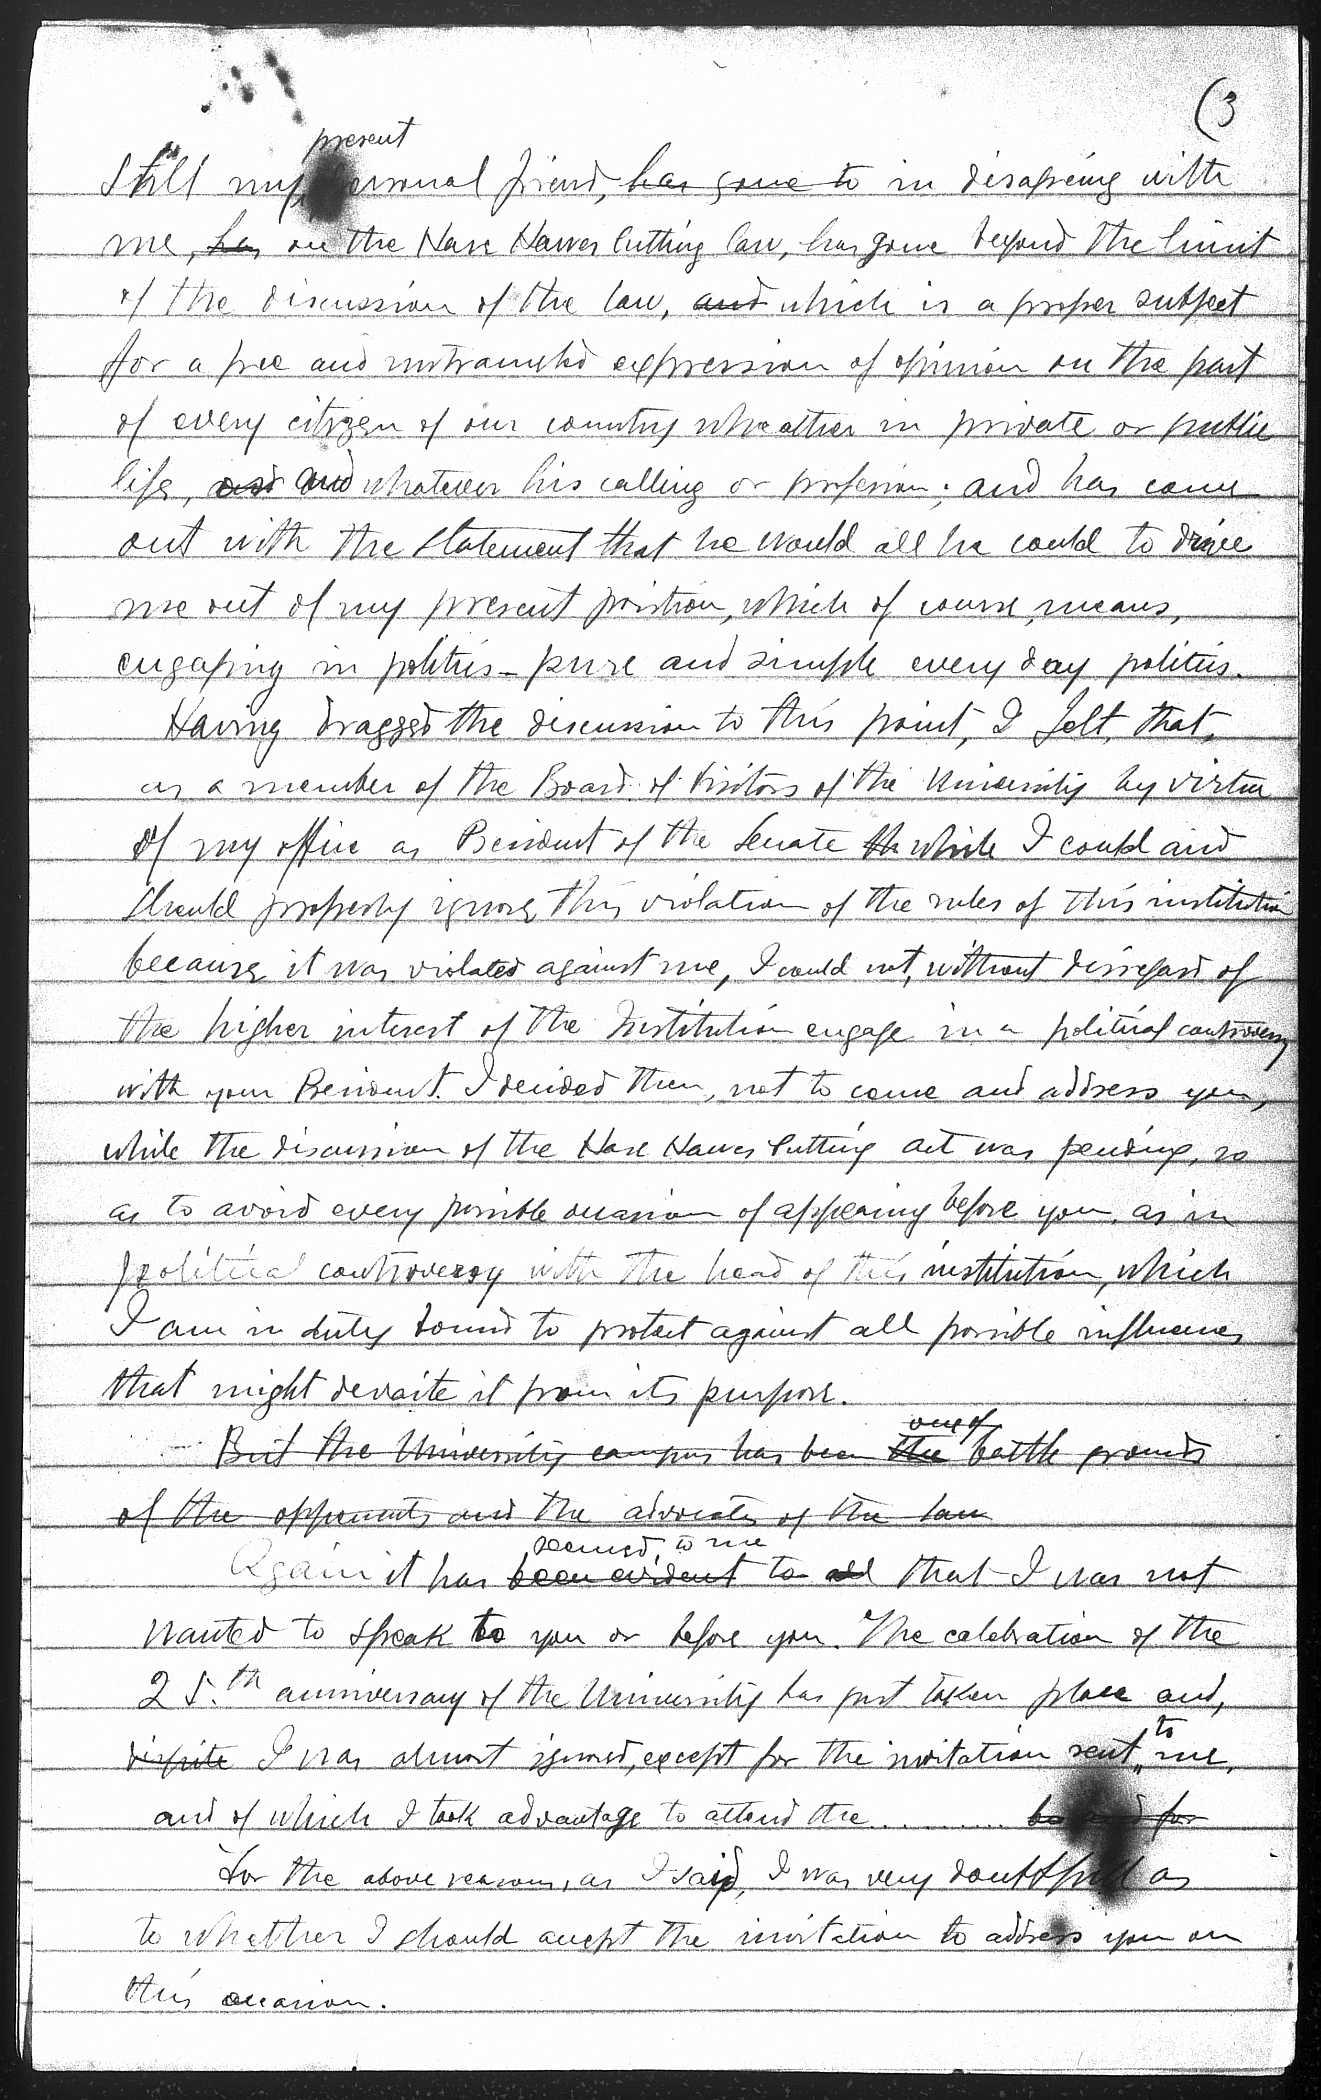 (3
present
Still my personal friend, has gone to in disagreeing with
me, has on the Hare Hawes Cutting law, has gone beyond the limit
of the discussion of the law, and which is a proper subject
for a free and untrameled expression of opinion on the part
of every citizen of our country wheather in private or public
life, and and whatever his calling or profession; and has come
out with the statement that he would all he could to drive
me out of my present position, which of course, means,
engaging in politics - pure and simple every day politics.
Having dragged the discussion to this point, I felt, that,
as a member of the Board of Visitors of the University by virtue
of my office as President of the Senate th while I could and
should properly ignore this violation of the rules of this institution
because it was violated against me, I could not, without disregard of
the higher interest of the Institution engage in a political controversy
with your President. I decided then, not to come and address you,
while the discussion of the Hare Hawes Cutting act was pending, so
as to avoid every possible occasion of appearing before you, as in
political controversy with the head of this institution, which
I am in duty bound to protect against all possible influences
that might deviate it from its purpose.
one of
But the University campus has been the battle grounds
of the opponents and the advocates of the law
seemed to me
Again it has been evident to all that I was not
wanted to speak to you or before you. The celebration of the
25.th anniversary of the University has just taken place and,
to
dispite I was almost ignored, except for the invitation sent me,
and of which I took advantage to attend the .......... for
For the above reasons, as I said, I was very doubtful as
to whether I should accept the invitation to address you on
this occasion.